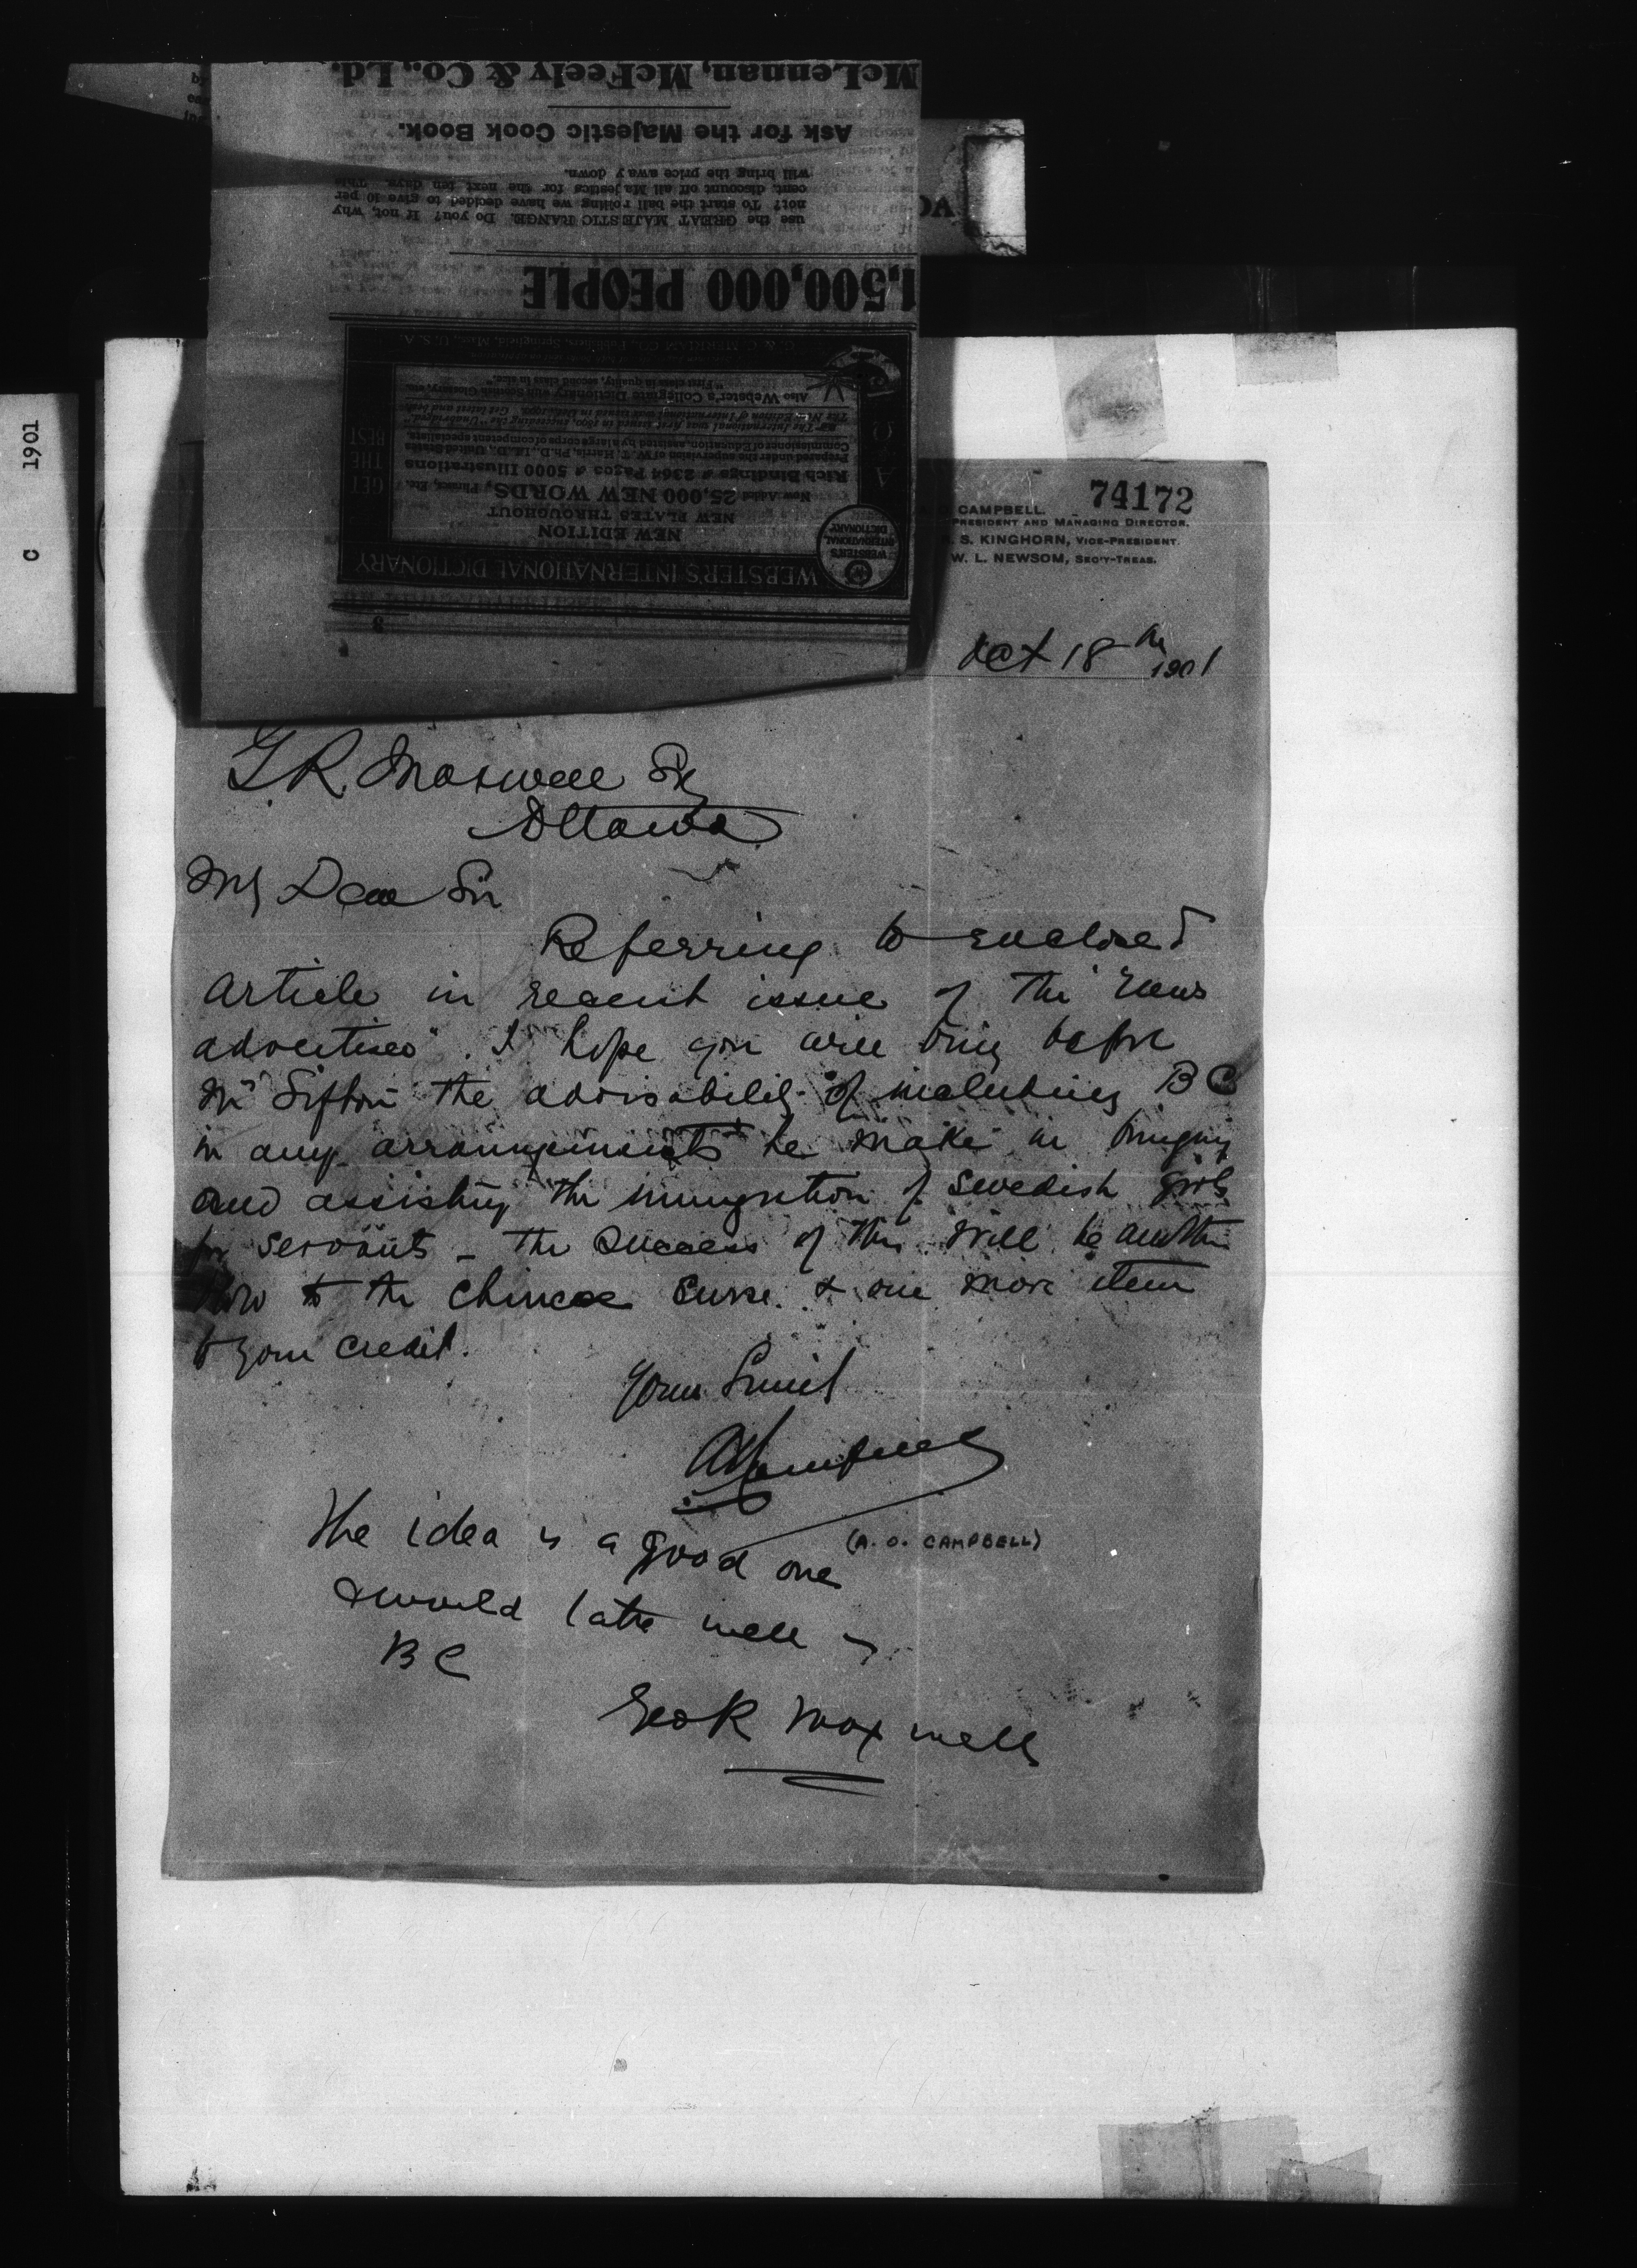 McLennan, McFeely & Co., Ld.
Ask for the Majestic Cook Book.
will bring the price away down.
cent. discount off all Majestics for the next ten days. This
not? To start the ball rolling we have decided to give 10 per
use the GREAT MAJESTIC RANGE. Do you? If not, why
1,500,000 PEOPLE
G. & C. MERRIAM CO., Publishers, Springfield, Mass., U. S. A.
"First class in quality, second class in size."
Also Webster's Collegiate Dictionary with Scottish Glossary, etc.
The New Edition of International was issued in Get latest and best
The International was first issued in 1890, succeeding the "Unabridged."
Commissioner of Education, assisted by a large corps of competent specialists.
Prepared under the supervision of W. T. Harris, Ph.D., LL.D., United States
Rich Bindings 2364 Pages 5000 Illustrations
Now Added 25,000 NEW WORDS, Phrases, Etc.
NEW PLATES THROUGHOUT
NEW EDITION
GET
THE
BEST
WEBSTER'S
INTERNATIONAL
DICTIONARY
WEBSTER'S INTERNATIONAL DICTIONARY
8
C 1901
74172
CAMPBELL.
PRESIDENT AND MANAGING DIRECTOR.
S. KINGHORN, VICE-PRESIDENT.
W. L. NEWSOM, SEC'Y-TREAS.
Oct 18th 1901
G. R. Maxwell Esq
Ottawa
My Dear Sir
Referring to enclosed
article in recent issue of the "news
advertiser". I hope you will bring before
Mr Sifton the advisability of including B C
in any arrangements he make in bringing
and assisting the immigration of Swedish girls
for servants - the success of this will be another
blow to the Chinese curse. & one more item
to your credit.
Yours Sincly
A O Campbell
(A. O. CAMPBELL)
The idea is a good one
& would take well in
B C
Geo R Maxwell